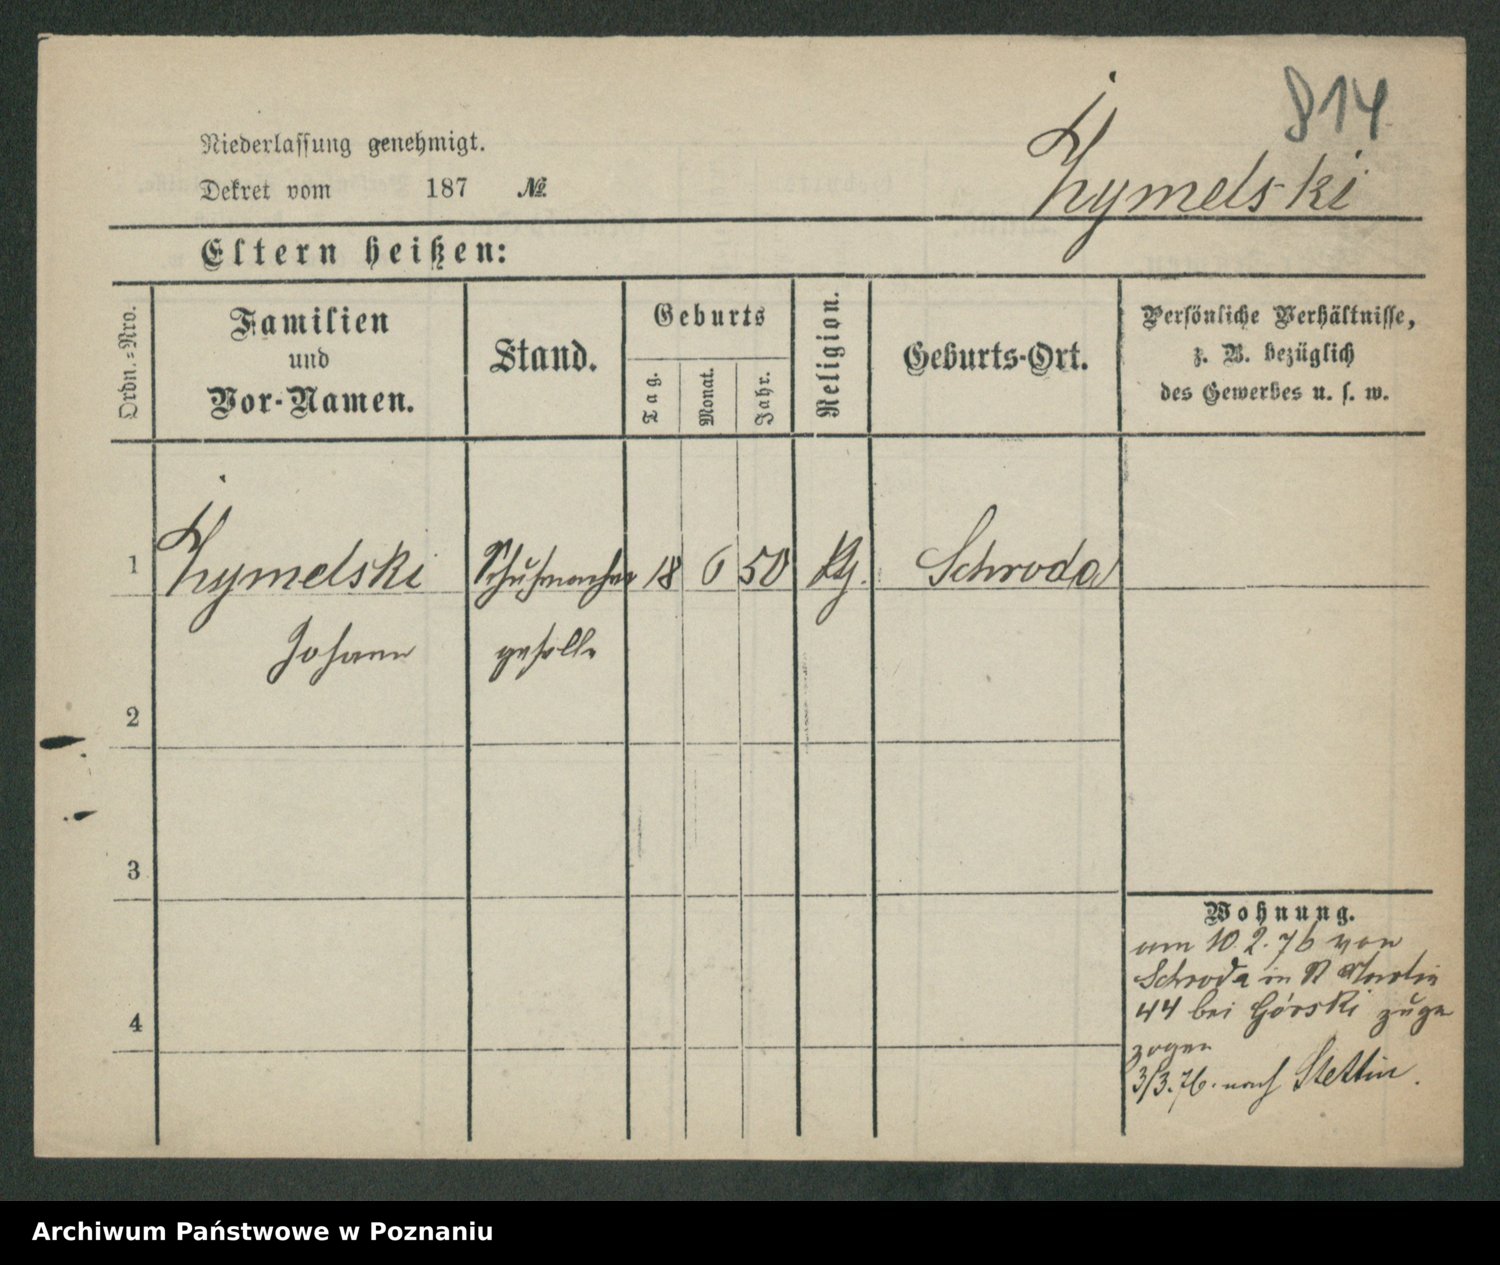 814
Niederlassung genehmigt.
Dekret vom 187 №
Żymelski
Eltern heißen:
Ordn.-Nro.
Familien
und
Vor-Namen.
Stand.
Geburts
Tag.
Monat.
Jahr.
Religion.
Geburts-Ort.
Persönliche Verhältnisse,
z. B. bezüglich
des Gewerbes u. s. w.
1 Żymelski Schuhmacher 18 6 50 Schroda
Johann geselle
2
3
Wohnung.
am 10.2.76 von
Schroda in St Martin
44 bei Górski zuge
zogen
3/3.76. nach Stettin.
4
Archiwum Państwowe w Poznaniu